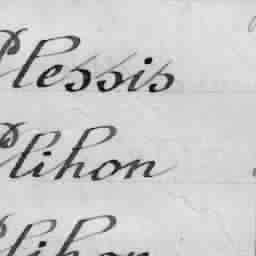 Plessis
Plihon
Plihon